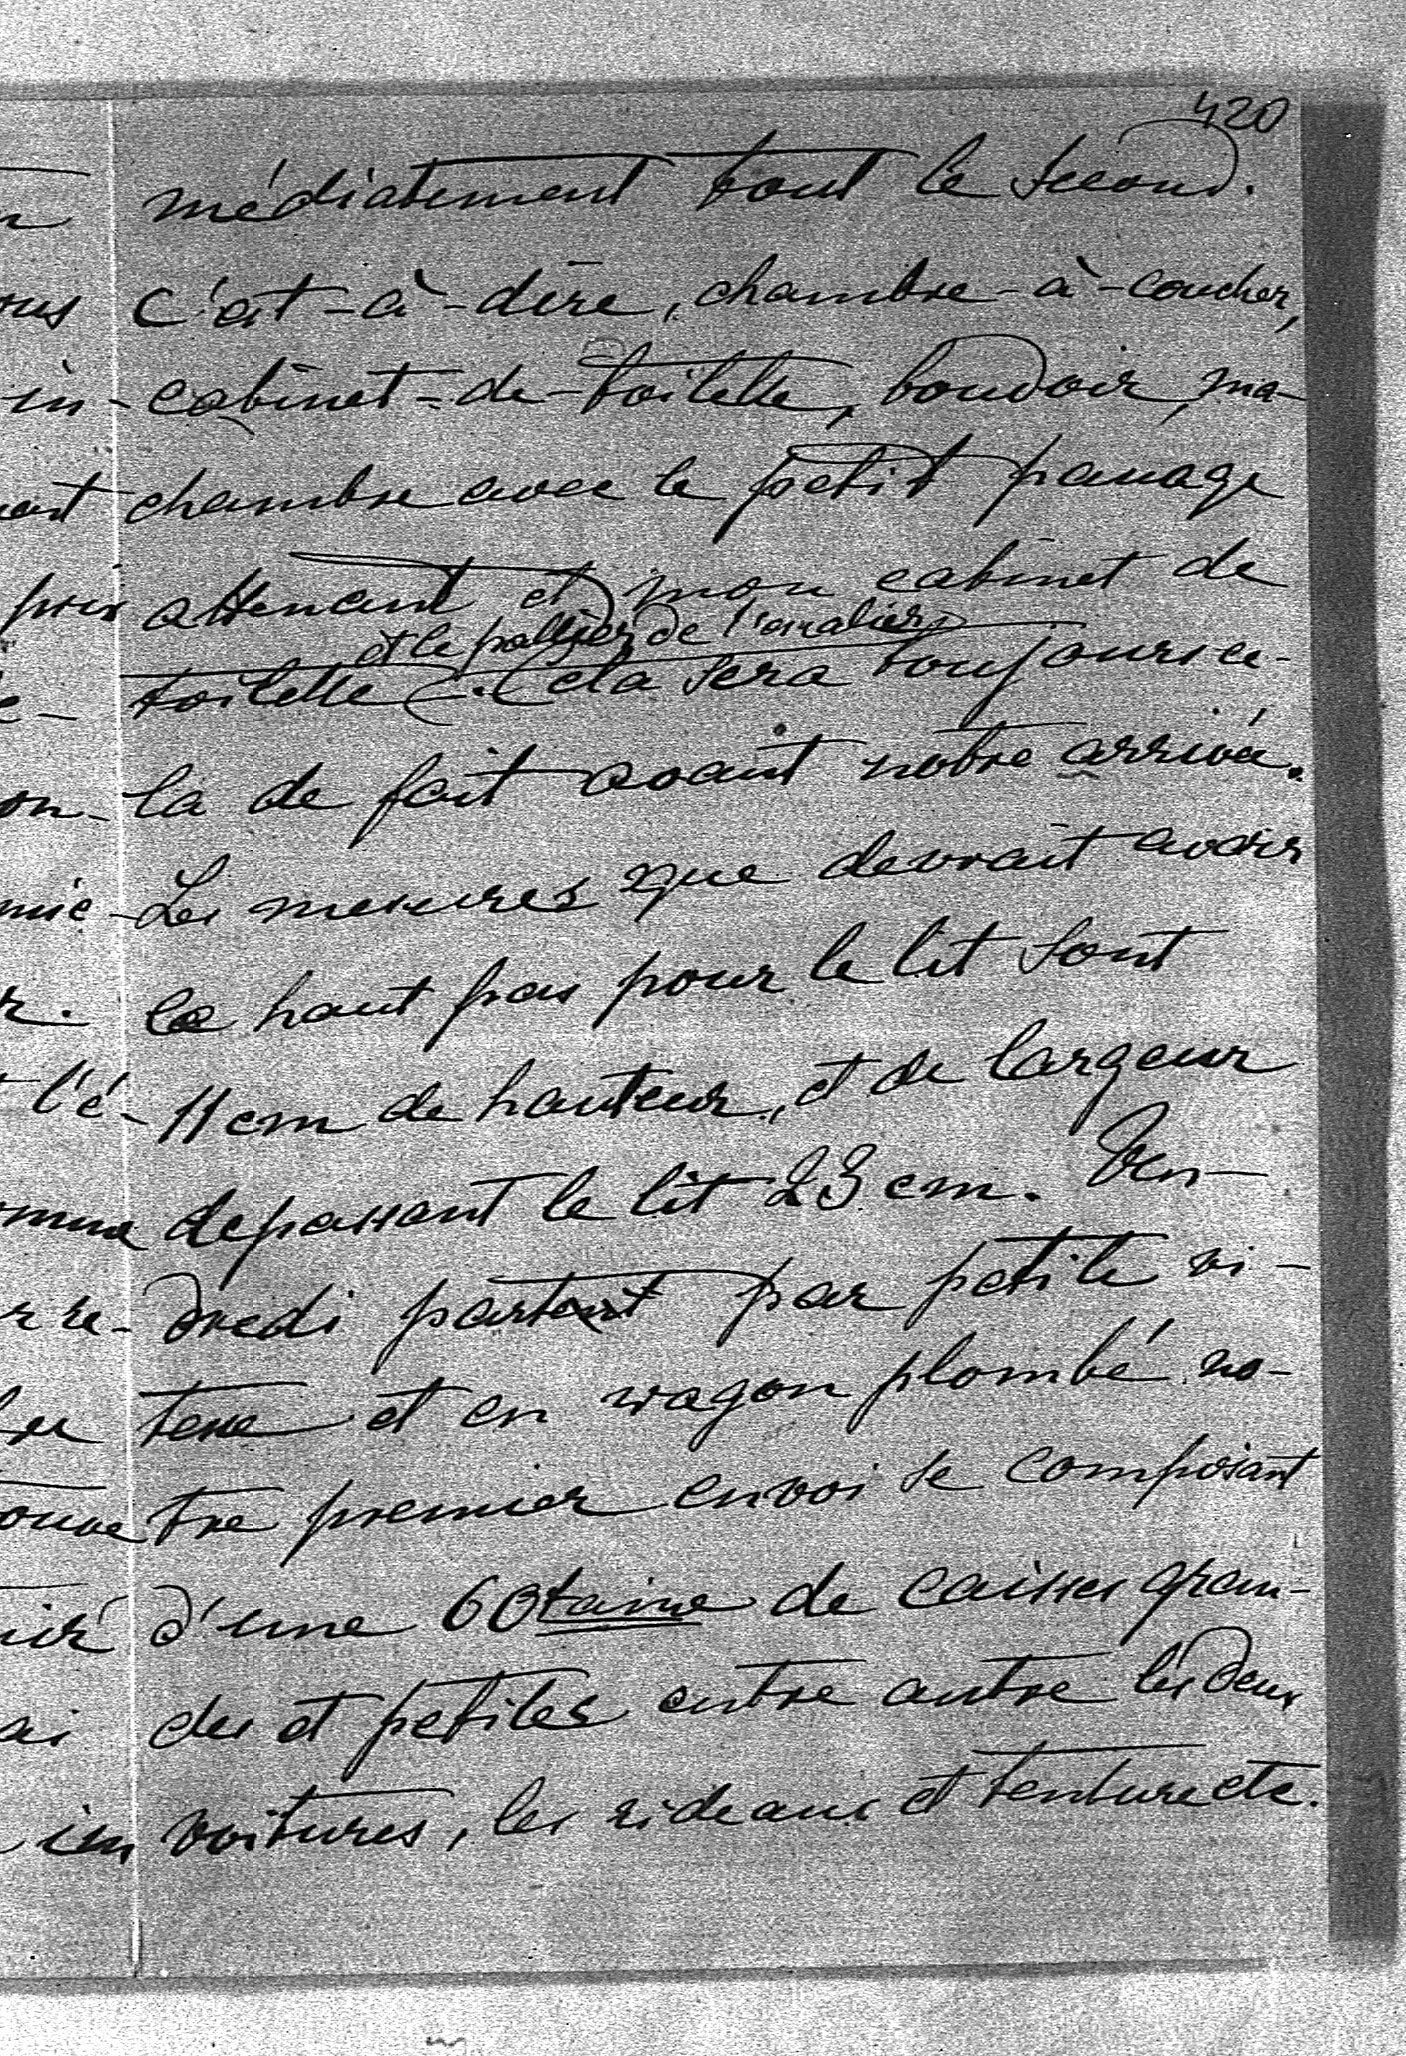 420
médiatement tout le second.
C'est-à-dire, chambre-à-coucher,
cabinet-de-toilette, boudoir, ma
chambre avec le petit passage
attenant et mon cabinet de
et le pallier de l'escalier
toilette. Cela sera toujours ce-
la de fait avant notre arrivée.
Les mesures que devrait avoir
le haut pas pour le lit sont
11 cm de hauteur, et de largeur
depassant le lit 23 cm. Ven-
dredi partent par petite vi-
tesse et en wagon plombé no-
tre premier envoi se composant
d'une 60taine de caisses gran-
des et petites entre autre les deux
voitures, les rideaux et tenture etc.